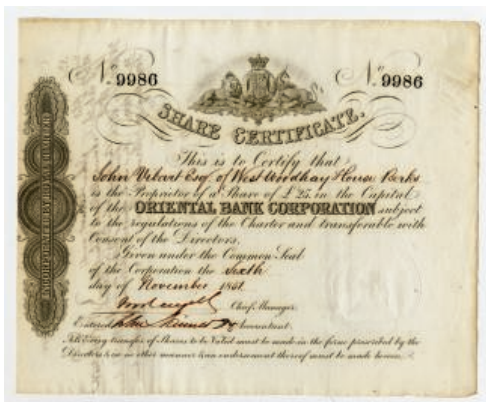 No. 9986 No. 9986
SHARE CERTIFICATE.
INCORPORATED BY ROYAL CHARTER
This is to Certify that
John Esq. of West Woodhay House Berks
is the Proprietor of a Share of £25, in the Capital
of the ORIENTAL BANK CORPORATION subject
to the regulations of the Charter and transferable with
Consent of the Directors.
Given under the Common Seal
of the Corporation the Sixth
day of November 1851.
Chief Manager.
Entered John Accountant.
N.B. Every transfer of Shares to be Valid must be made in the form prescribed by the
Directors & in no other manner & an endorsement thereof must be made hereon.